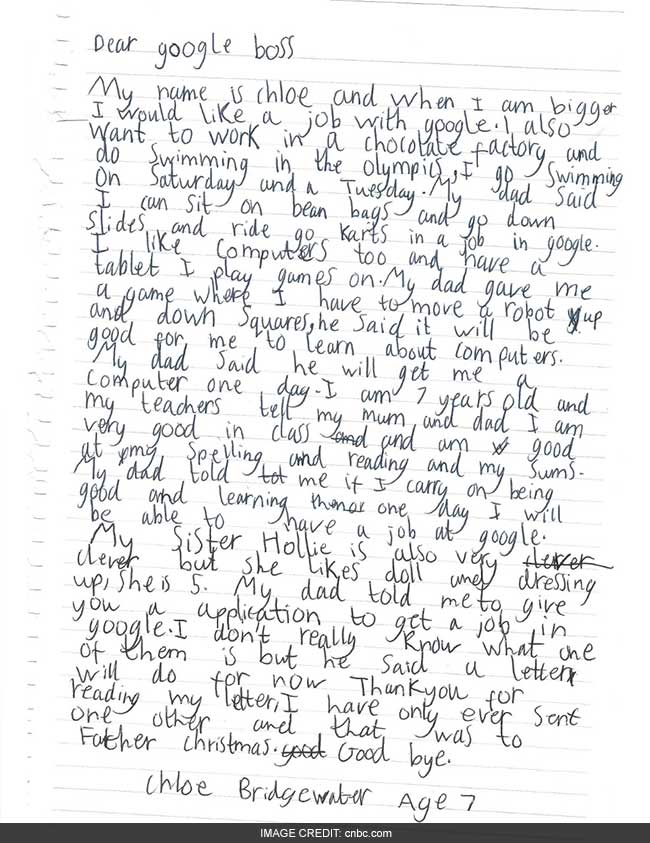 Dear google boss
My name is chloe and when I am bigger
I would like a job with google. I also
want to work in a chocolate factory and
do swimming in the olympics, I go Swimming
on Saturday and a Tuesday. My dad said
I can sit on bean bags and go down
slides and ride go karts in a job in google.
I like computers too and have a
tablet I play games on. My dad gave me
a game where I have to move a robot up
and down squares, he said it will be
good for me to learn about computers.
My dad said he will get me a
computer one day. I am 7 years old and
my teachers tell my mum and dad I am
very good in class and and am good
at my spelling and reading and my sums.
My dad told me if I carry on being
good and learning one day I will
be able to have a job at google.
My sister Hollie is also very clever
clever but she likes doll and dressing
up, she is 5. My dad told me to give
you a application to get a job in
google. I don't really know what one
of them is but he said a letter
will do for now Thankyou for
reading my letter, I have only ever sent
one other and that was to
Father christmas. good Good bye.
Chloe Bridgewater Age 7
IMAGE CREDIT: cnbc.com